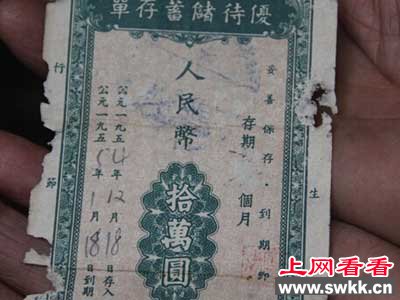 優待儲蓄存單
生
妥善保存·到期即
存期 個月
人民幣
拾萬圓
公元一九五4年12月18日存入
公元一九五5年1月18日到期
行
節
上网看看
www.swkk.cn